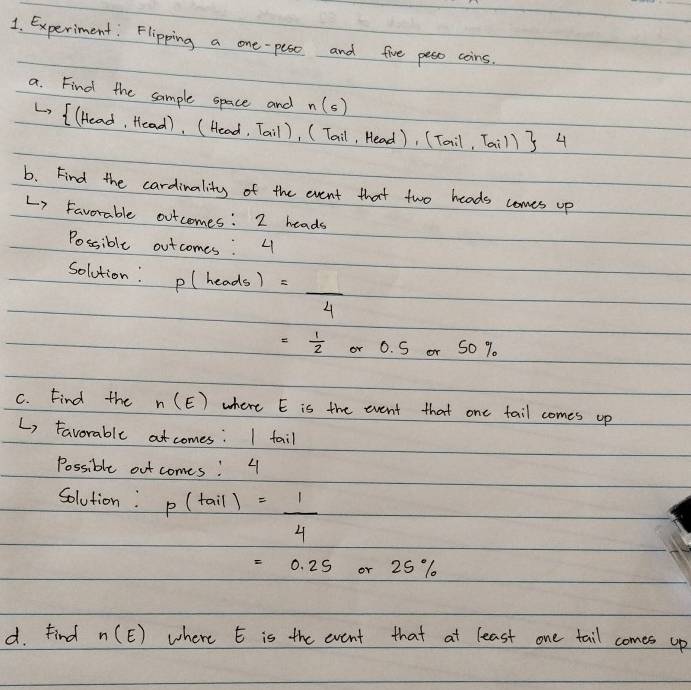 1. Experiment: Flipping a one-peso and five peso coins.
a. Find the sample space and n(s)
↳ {(Head, Head), (Head, Tail), (Tail, Head), (Tail, Tail)} 4
b. Find the cardinality of the event that two heads comes up
↳ Favorable outcomes: 2 heads
Possible outcomes: 4
Solution: p(heads) = 
4
= 1/2 or 0.5 or 50%
c. Find the n(E) where E is the event that one tail comes up
↳ Favorable outcomes: 1 tail
Possible outcomes: 4
Solution: p(tail) = 1
4
= 0.25 or 25%
d. Find n(E) where E is the event that at least one tail comes up